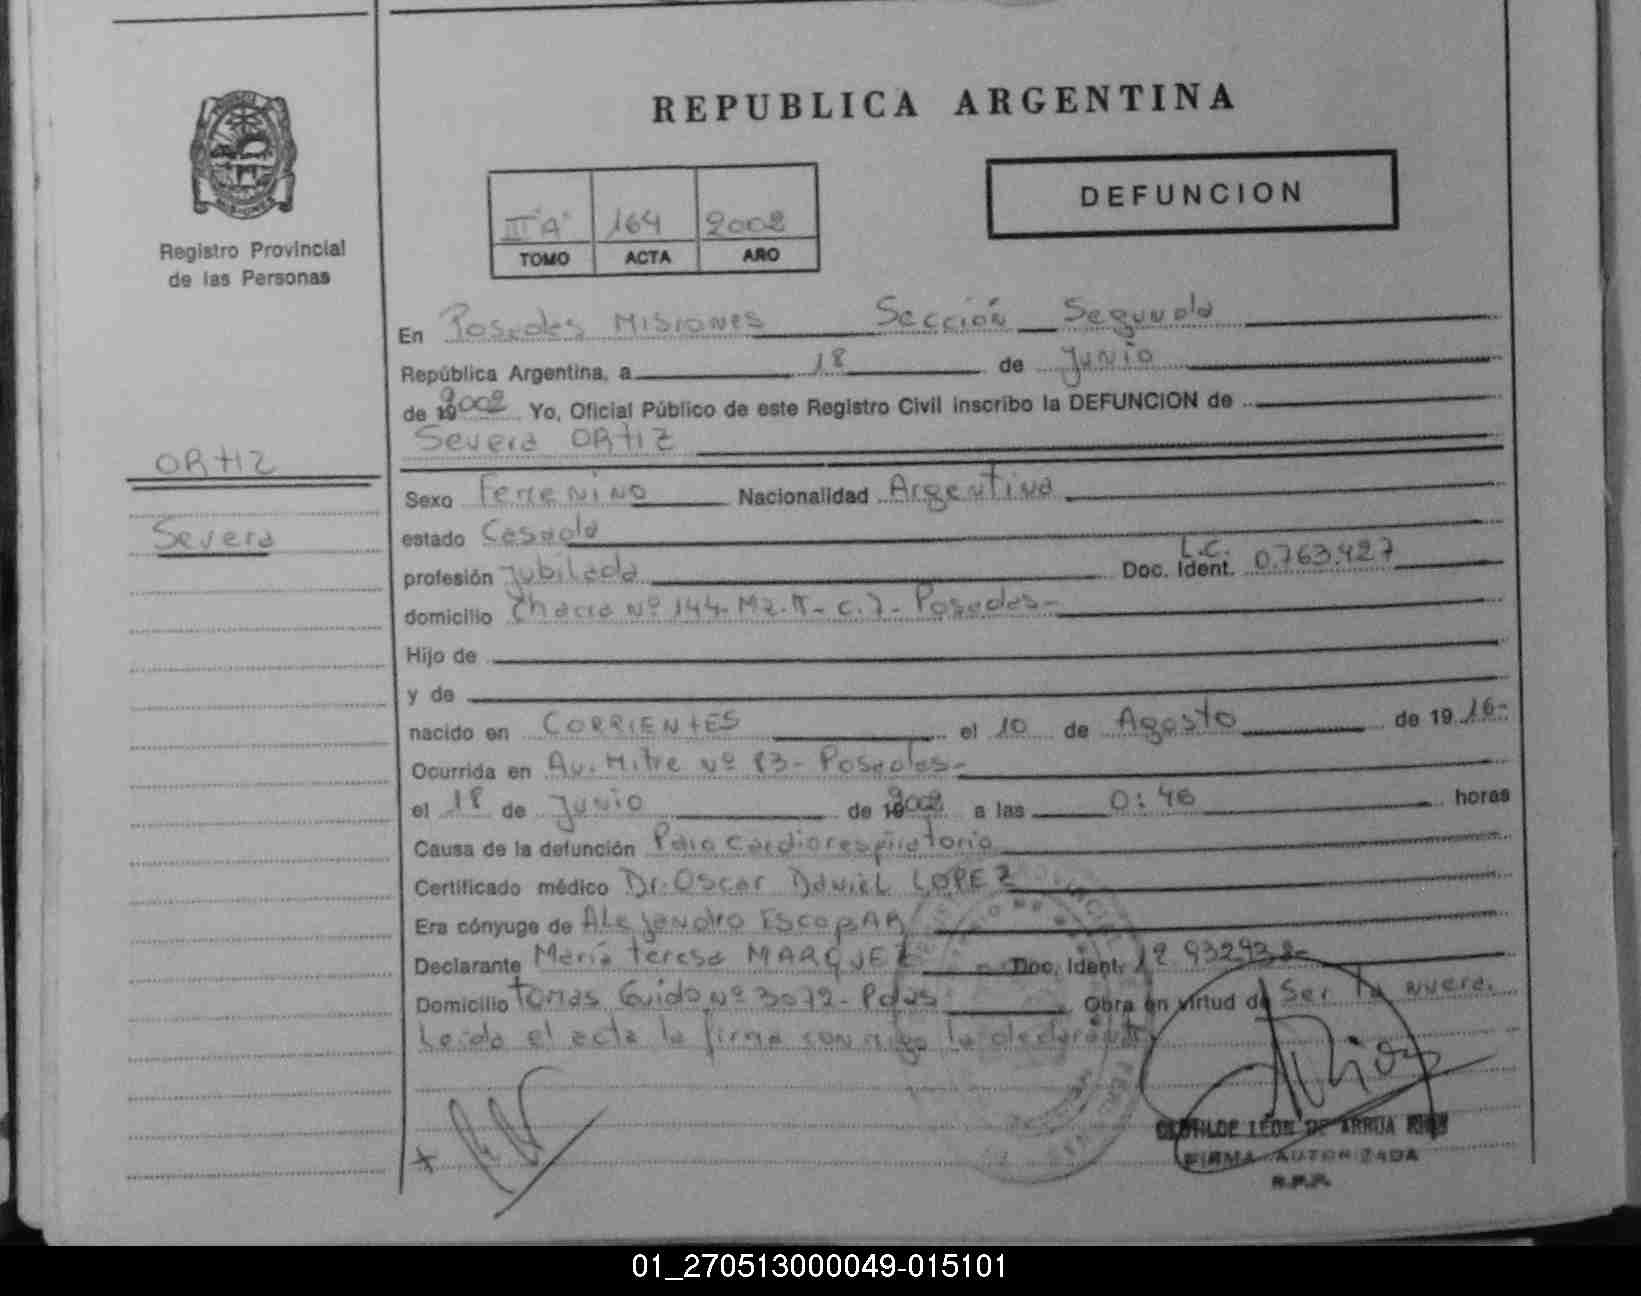 REPUBLICA ARGENTINA
DEFUNCION
II "A" 164 2002
TOMO ACTA AÑO
Registro Provincial
de las Personas
En Posadas Misiones Sección Segunda
República Argentina, a 18 de Junio
de 2002 Yo, Oficial Público de este Registro Civil inscribo la DEFUNCION de
Severa ORTIZ
ORTIZ
Severa
Sexo Femenino Nacionalidad Argentina
estado Casada
profesión Jubilada Doc. Ident. L.C. 0.763.427
domicilio Chacra Nº 144- Mz. - C.7- Posadas-
Hijo de
y de
nacido en CORRIENTES el 10 de Agosto de 1916-
Ocurrida en Av. Mitre Nº 83- Posadas-
el 18 de Junio de 2002 a las 0:46 horas
Causa de la defunción Paro Cardiorespiratorio
Certificado médico Dr. Oscar Daniel LOPEZ
Era cónyuge de Alejandro ESCOBAR
Declarante María Teresa MARQUEZ Doc. Ident. 12.932.938-
Domicilio Tomas Guido Nº 3072- Pdas Obra en virtud de Ser la nuera.
Leida el acta la firma conmigo la declarante
CLOTILDE LEON DE ARRUA RIOS
FIRMA AUTORIZADA
R.P.P.
01_270513000049-015101